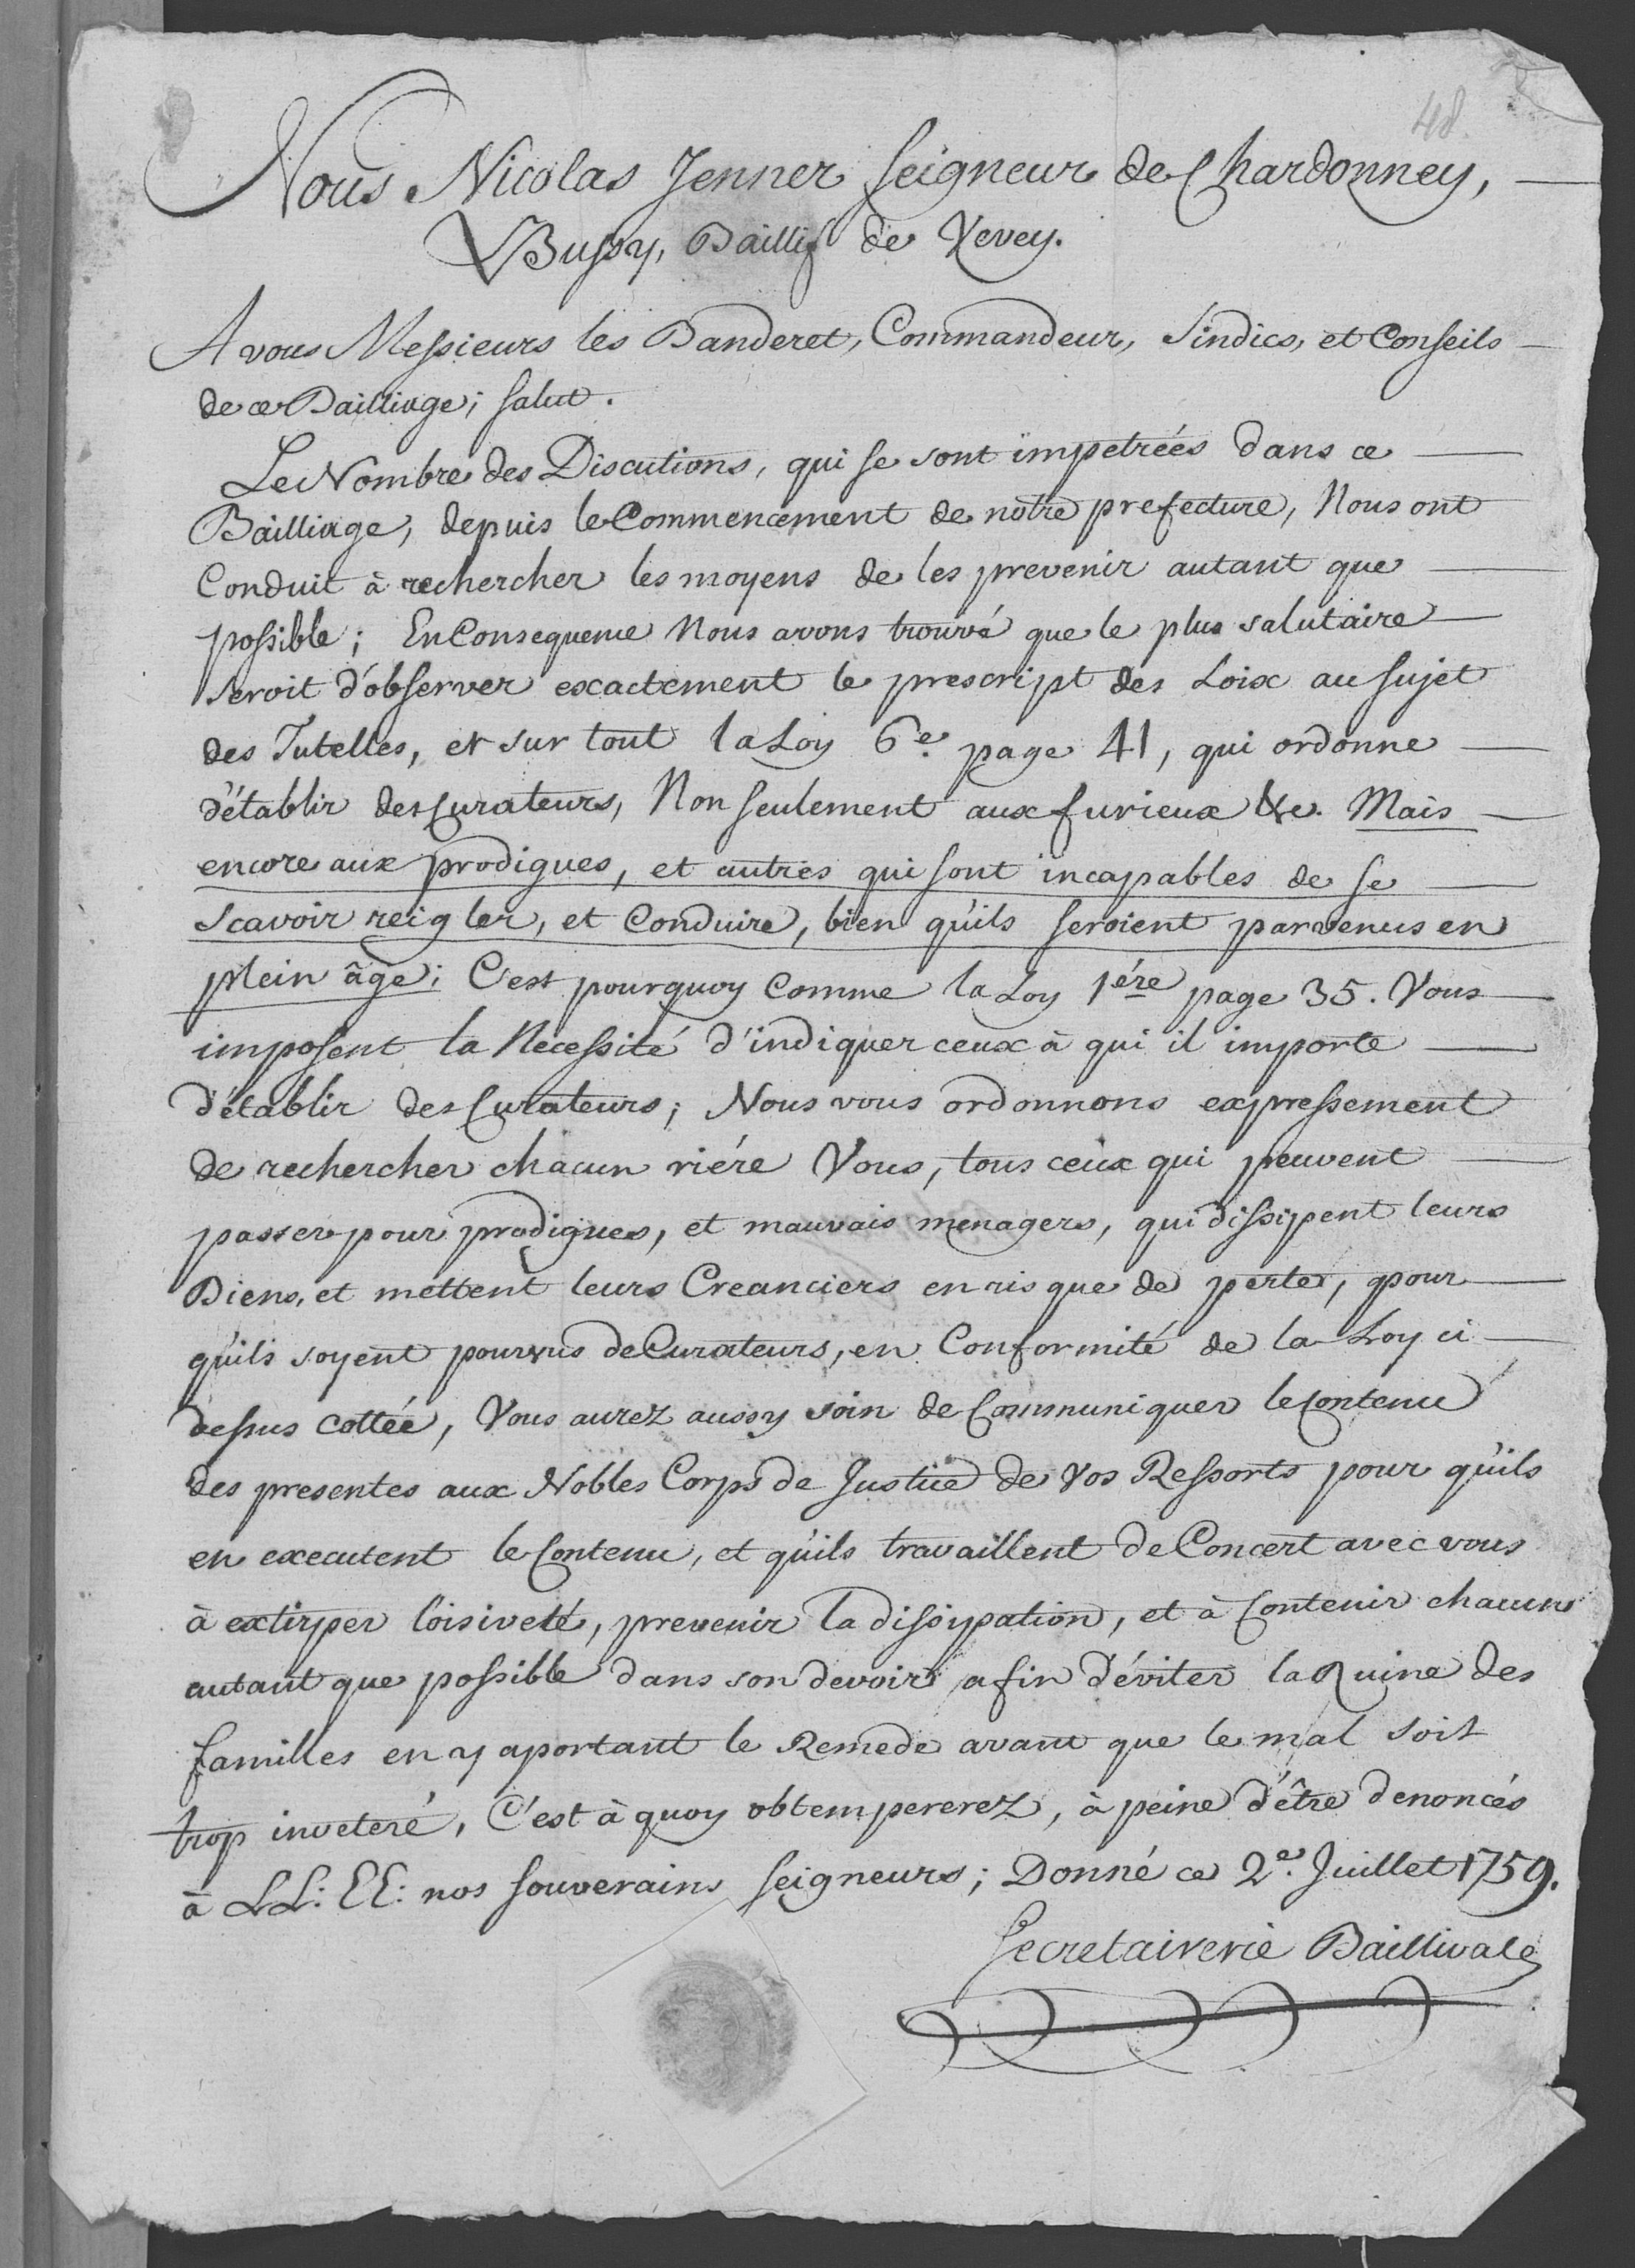 48.
Nous Nicolas Jenner Seigneur de Chardonney,
Bussy, Baillif de Vevey.
A vous Messieurs les Banderet, Commandeur, Sindics, et Conseils
de ce Bailliage; salut.
Le Nombre des Discutions, qui se sont impetrées dans ce
Bailliage, depuis le Commencement de notre prefecture, Nous ont
Conduit à rechercher les moyens de les prevenir autant que
possible; En Consequence Nous avons trouvé que le plus salutaire
seroit d'observer exactement le prescript des Loix au sujet
des Tutelles, et sur tout la Loy 6e. page 41, qui ordonne
d'établir des Curateurs, Non seulement aux furieux &c. Mais
encore aux prodigues, et autres qui sont incapables de se
scavoir reigler, et Conduire, bien qu'ils seroient parvenus en
plein âge; C'est pourquoy Comme la Loy 1ére page 35. Vous
imposent la Necessité d'indiquer ceux à qui il importe
d'établir des Curateurs; Nous vous ordonnons expressement
de rechercher chacun riére Vous, tous ceux qui peuvent
passer pour prodigues, et mauvais menagers, qui dissipent leurs
Biens, et mettent leurs Creanciers en risque de perte, pour
qu'ils soyent pourvus de Curateurs, en Conformité de la Loy ci
dessus cottée, Vous aurez aussy soin de Communiquer le Contenu
des presentes aux Nobles Corps de Justice de Vos Ressorts pour qu'ils
en executent le Contenu, et qu'ils travaillent de Concert avec vous
à extirper l'oisiveté, prevenir la dissipation, et à Contenir chacun
autant que possible dans son devoir, afin d'éviter la Ruine des
familles en y aportant le Remede avant que le mal soit
trop inveteré, C'est à quoy obtempererez, à peine d'être denoncés
à LL: EE: nos souverains seigneurs; Donné ce 2e. Juillet 1759.
Secretairerie Baillivale